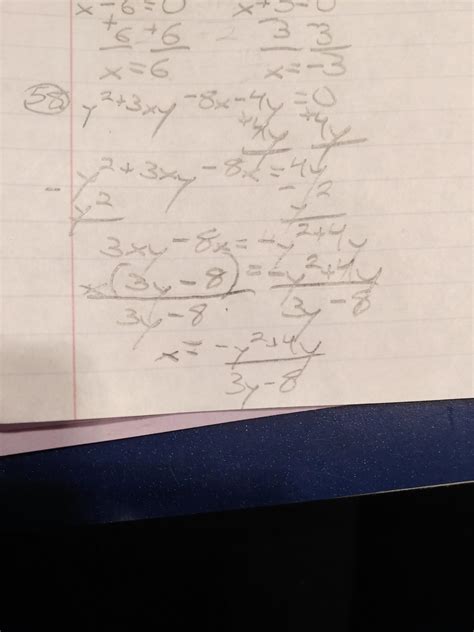 x-6=0 x+3=0
+6 +6 3 3
x=6 x=-3
58 y²+3xy-8x-4y=0
+4y +4y
y²+3xy-8x=4y
-y² -y²
3xy-8x=-y²+4y
x(3y-8)=-y²+4y
3y-8 3y-8
x=-y²+4y
3y-8